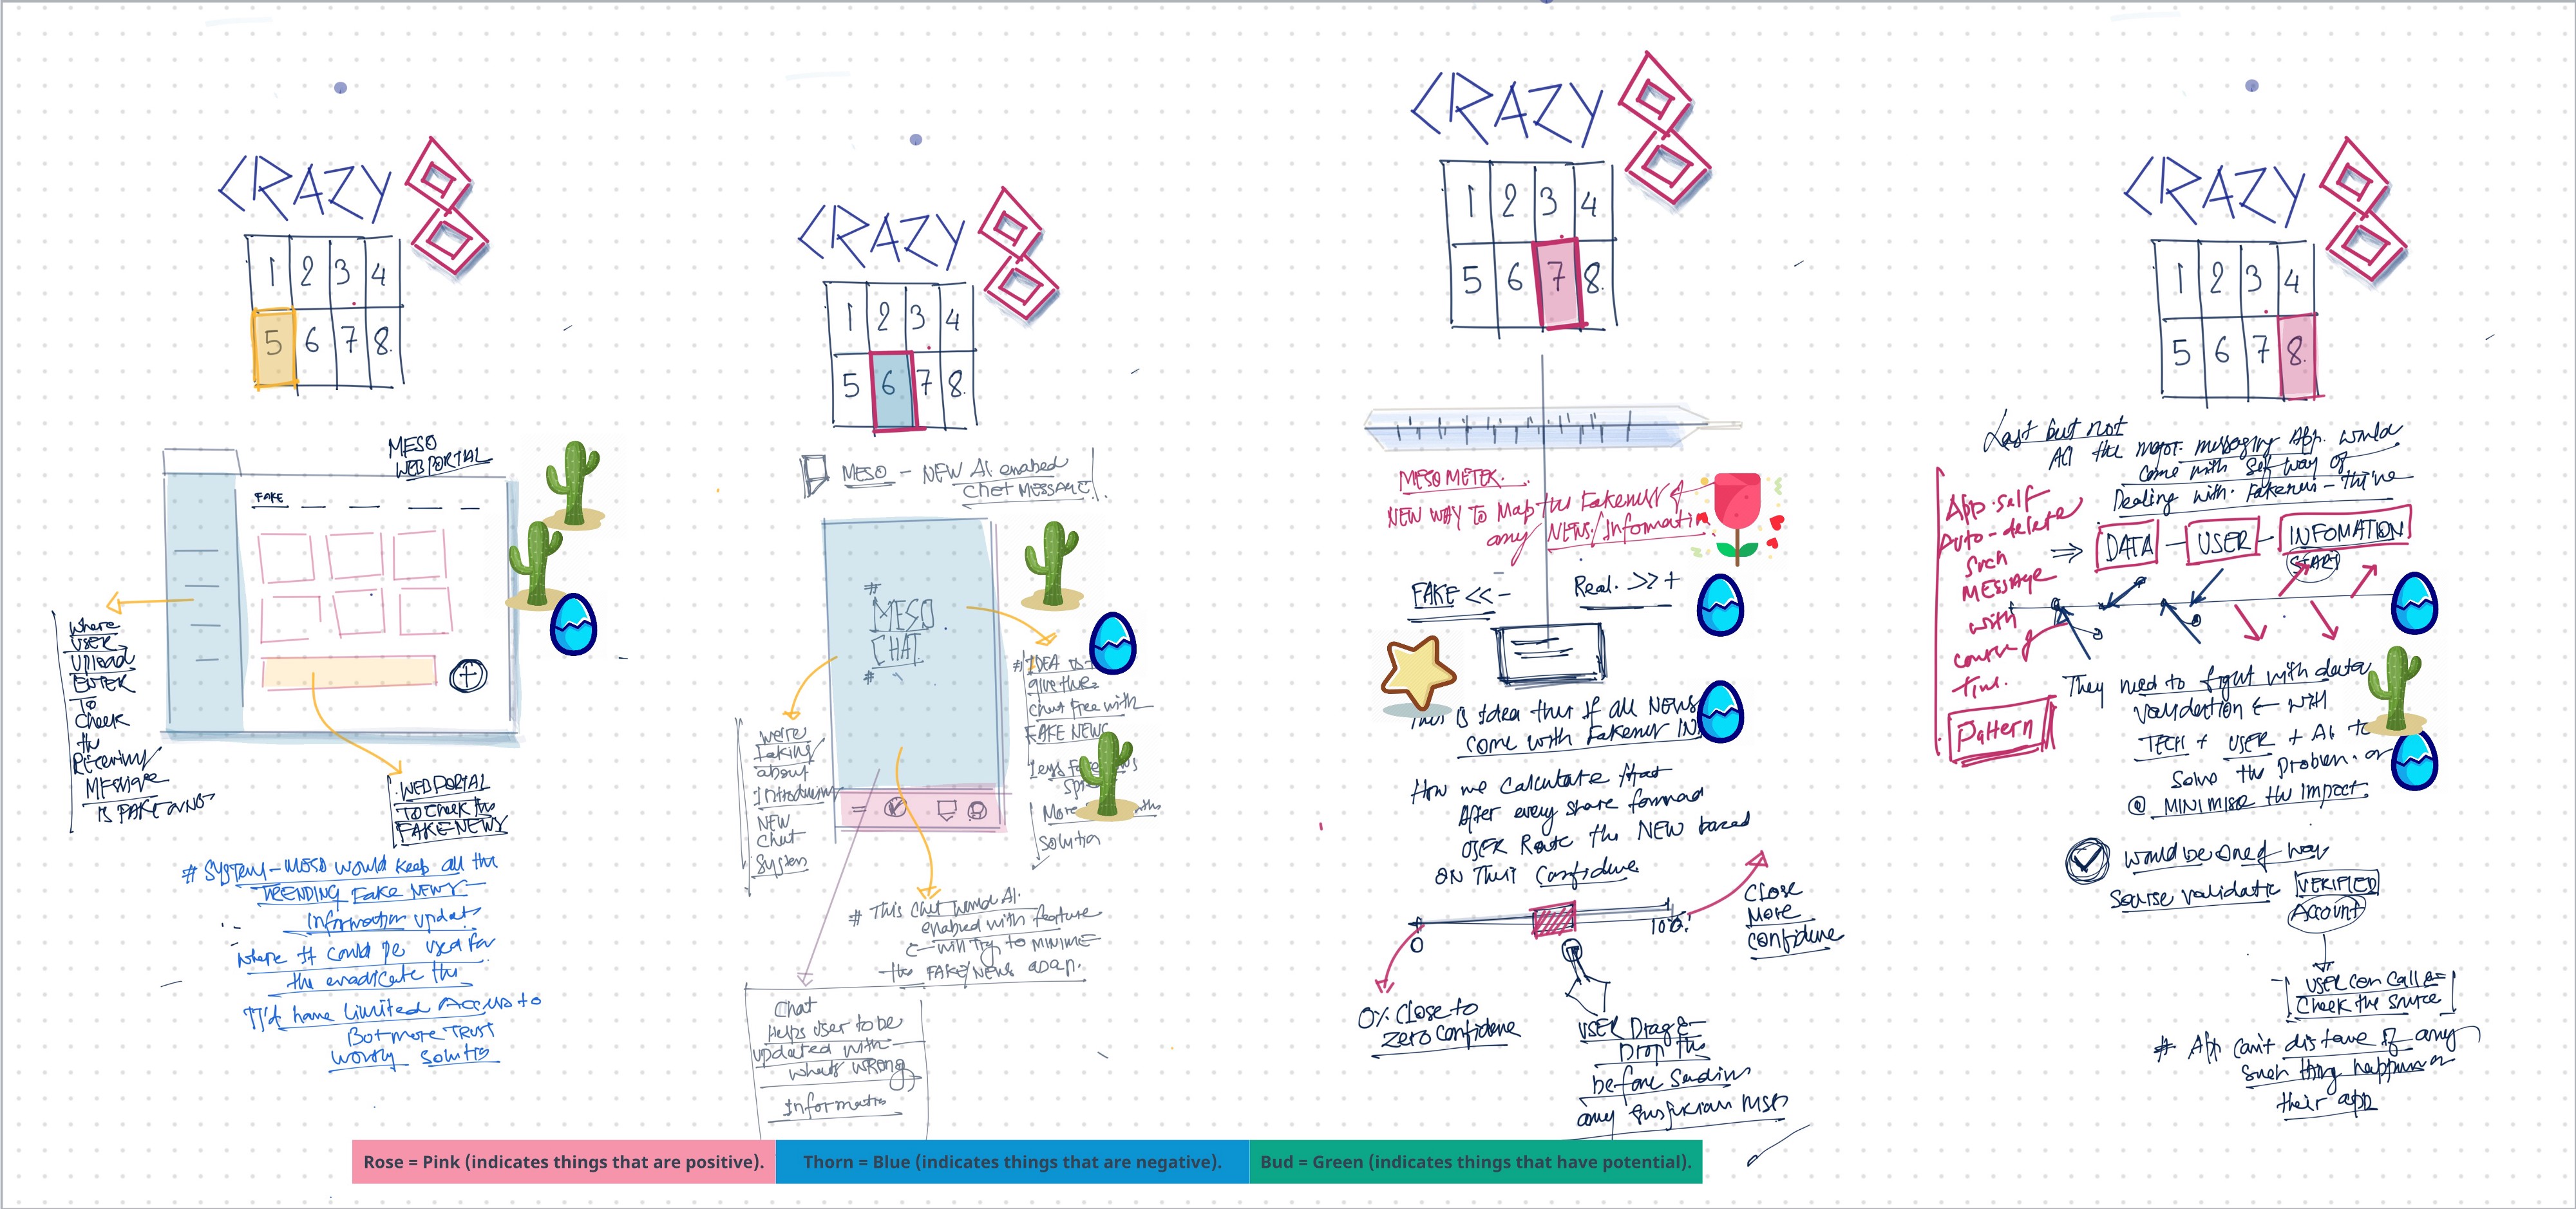 CRAZY 8
1 2 3 4
5 6 7 8.
MESO
WEB PORTAL
FAKE
where
USER
upload
ENTER
TO
Check
the
MESSAGE
IS FAKE or NOT
WEB PORTAL
TO Check the
FAKE NEWS
# SYSTEM - MESO would keep all the
TRENDING Fake NEWS
Information update
where It could be used for
the eradicate the
have Limited Access to
But more TRUST
worthy Solution
CRAZY 8
1 2 3 4
5 6 7 8.
MESO - NEW AI enabled
Chat MESSAGE.
#
MESO
CHAT
#
We're
talking
about
Introducing
NEW
Chat
System
# IDEA is
give the
chat free with
FAKE NEWS
Less
More
Solution
# This Chat would AI.
enabled with feature
will try to
the FAKE/NEWS
Chat
Helps user to be
updated with
what's wrong
Information
CRAZY 8
1 2 3 4
5 6 7 8.
MESO METER.
NEW WAY TO Map the Fakeness of
any NEWS/Information
FAKE << -
Real. >> +
This is Idea that if all NEWS
come with Fakeness IN
How we calculate that
After every share forward
USER Rate the NEW based
ON Their Confidence
0
100%
CLOSE
More
confidence
0% Close to
zero confidence
USER Drag &
Drop the
before Sending
any
CRAZY 8
1 2 3 4
5 6 7 8.
Last but not
All the major messaging App. would
come with Self way of
Dealing with Fakeness
App-self
Auto-delete
Such
MESSAGE
with
time.
Pattern
⇒ DATA - USER - INFOMATION
START
They need to fight with data
validation ← with
TECH + USER + AI to
Solve the Problem. or
@ MINIMISE the Impact.
would be one of way
Source validate VERIFIED
Account
USER can call &
Check the Source
# App can't if any
such thing happens on
their app
Rose = Pink (indicates things that are positive).
Thorn = Blue (indicates things that are negative).
Bud = Green (indicates things that have potential).